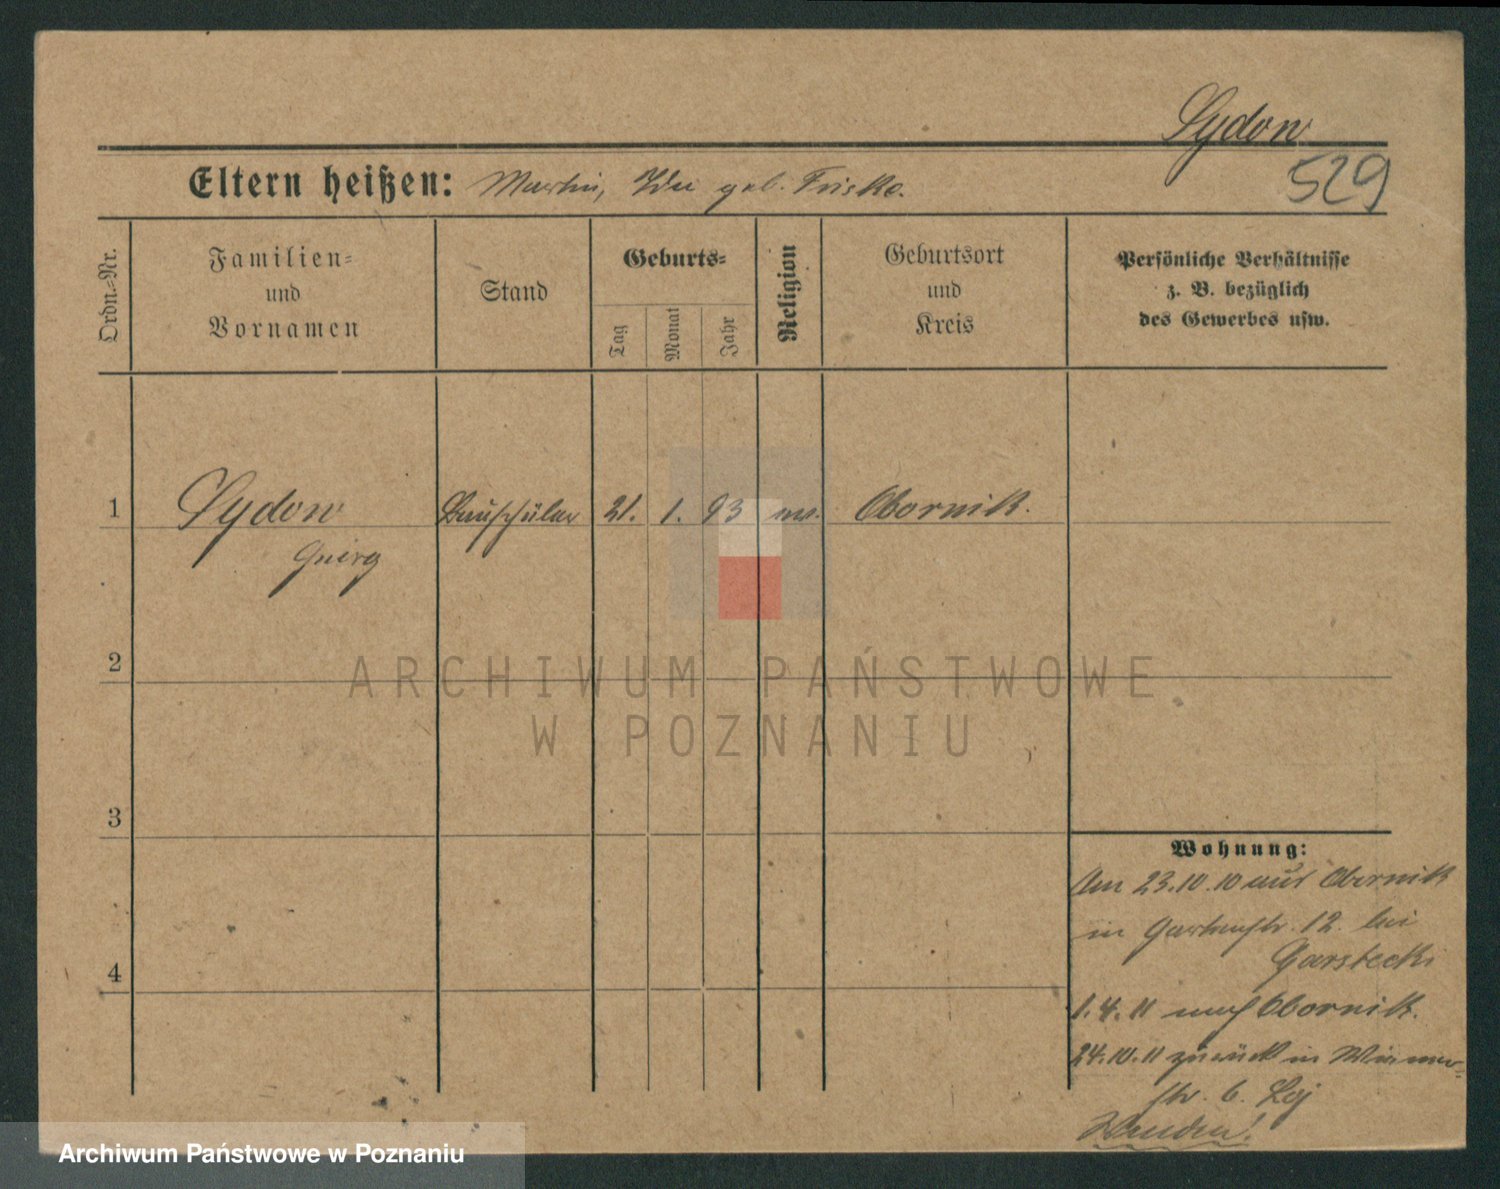 Sydow
529
Eltern heißen: Martin, Ida geb. Friske.
Ordn.-Nr.
Familien-
und
Vornamen
Stand
Geburts-
Tag
Monat
Jahr
Religion
Geburtsort
und
Kreis
Persönliche Verhältnisse
z. B. bezüglich
des Gewerbes usw.
1
Sydow
Georg
Bauschüler
21.
1.
93
ev.
Obornik.
2
3
4
Wohnung:
Am 23.10.10 aus Obornik
in Gartenstr. 12. bei
Garstecki
1.4.11 nach Obornik.
24.10.11 zurück in
str. 6.
Wenden!
ARCHIWUM PAŃSTWOWE
W POZNANIU
Archiwum Państwowe w Poznaniu